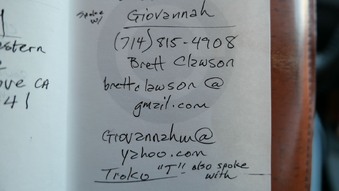 Spoke w/ Giovannah
(714) 815-4908
Brett Clawson
brettclawson @
gmail.com
Giovannahm@
yahoo.com
Troko "T" also spoke
with
estern
ove CA
41